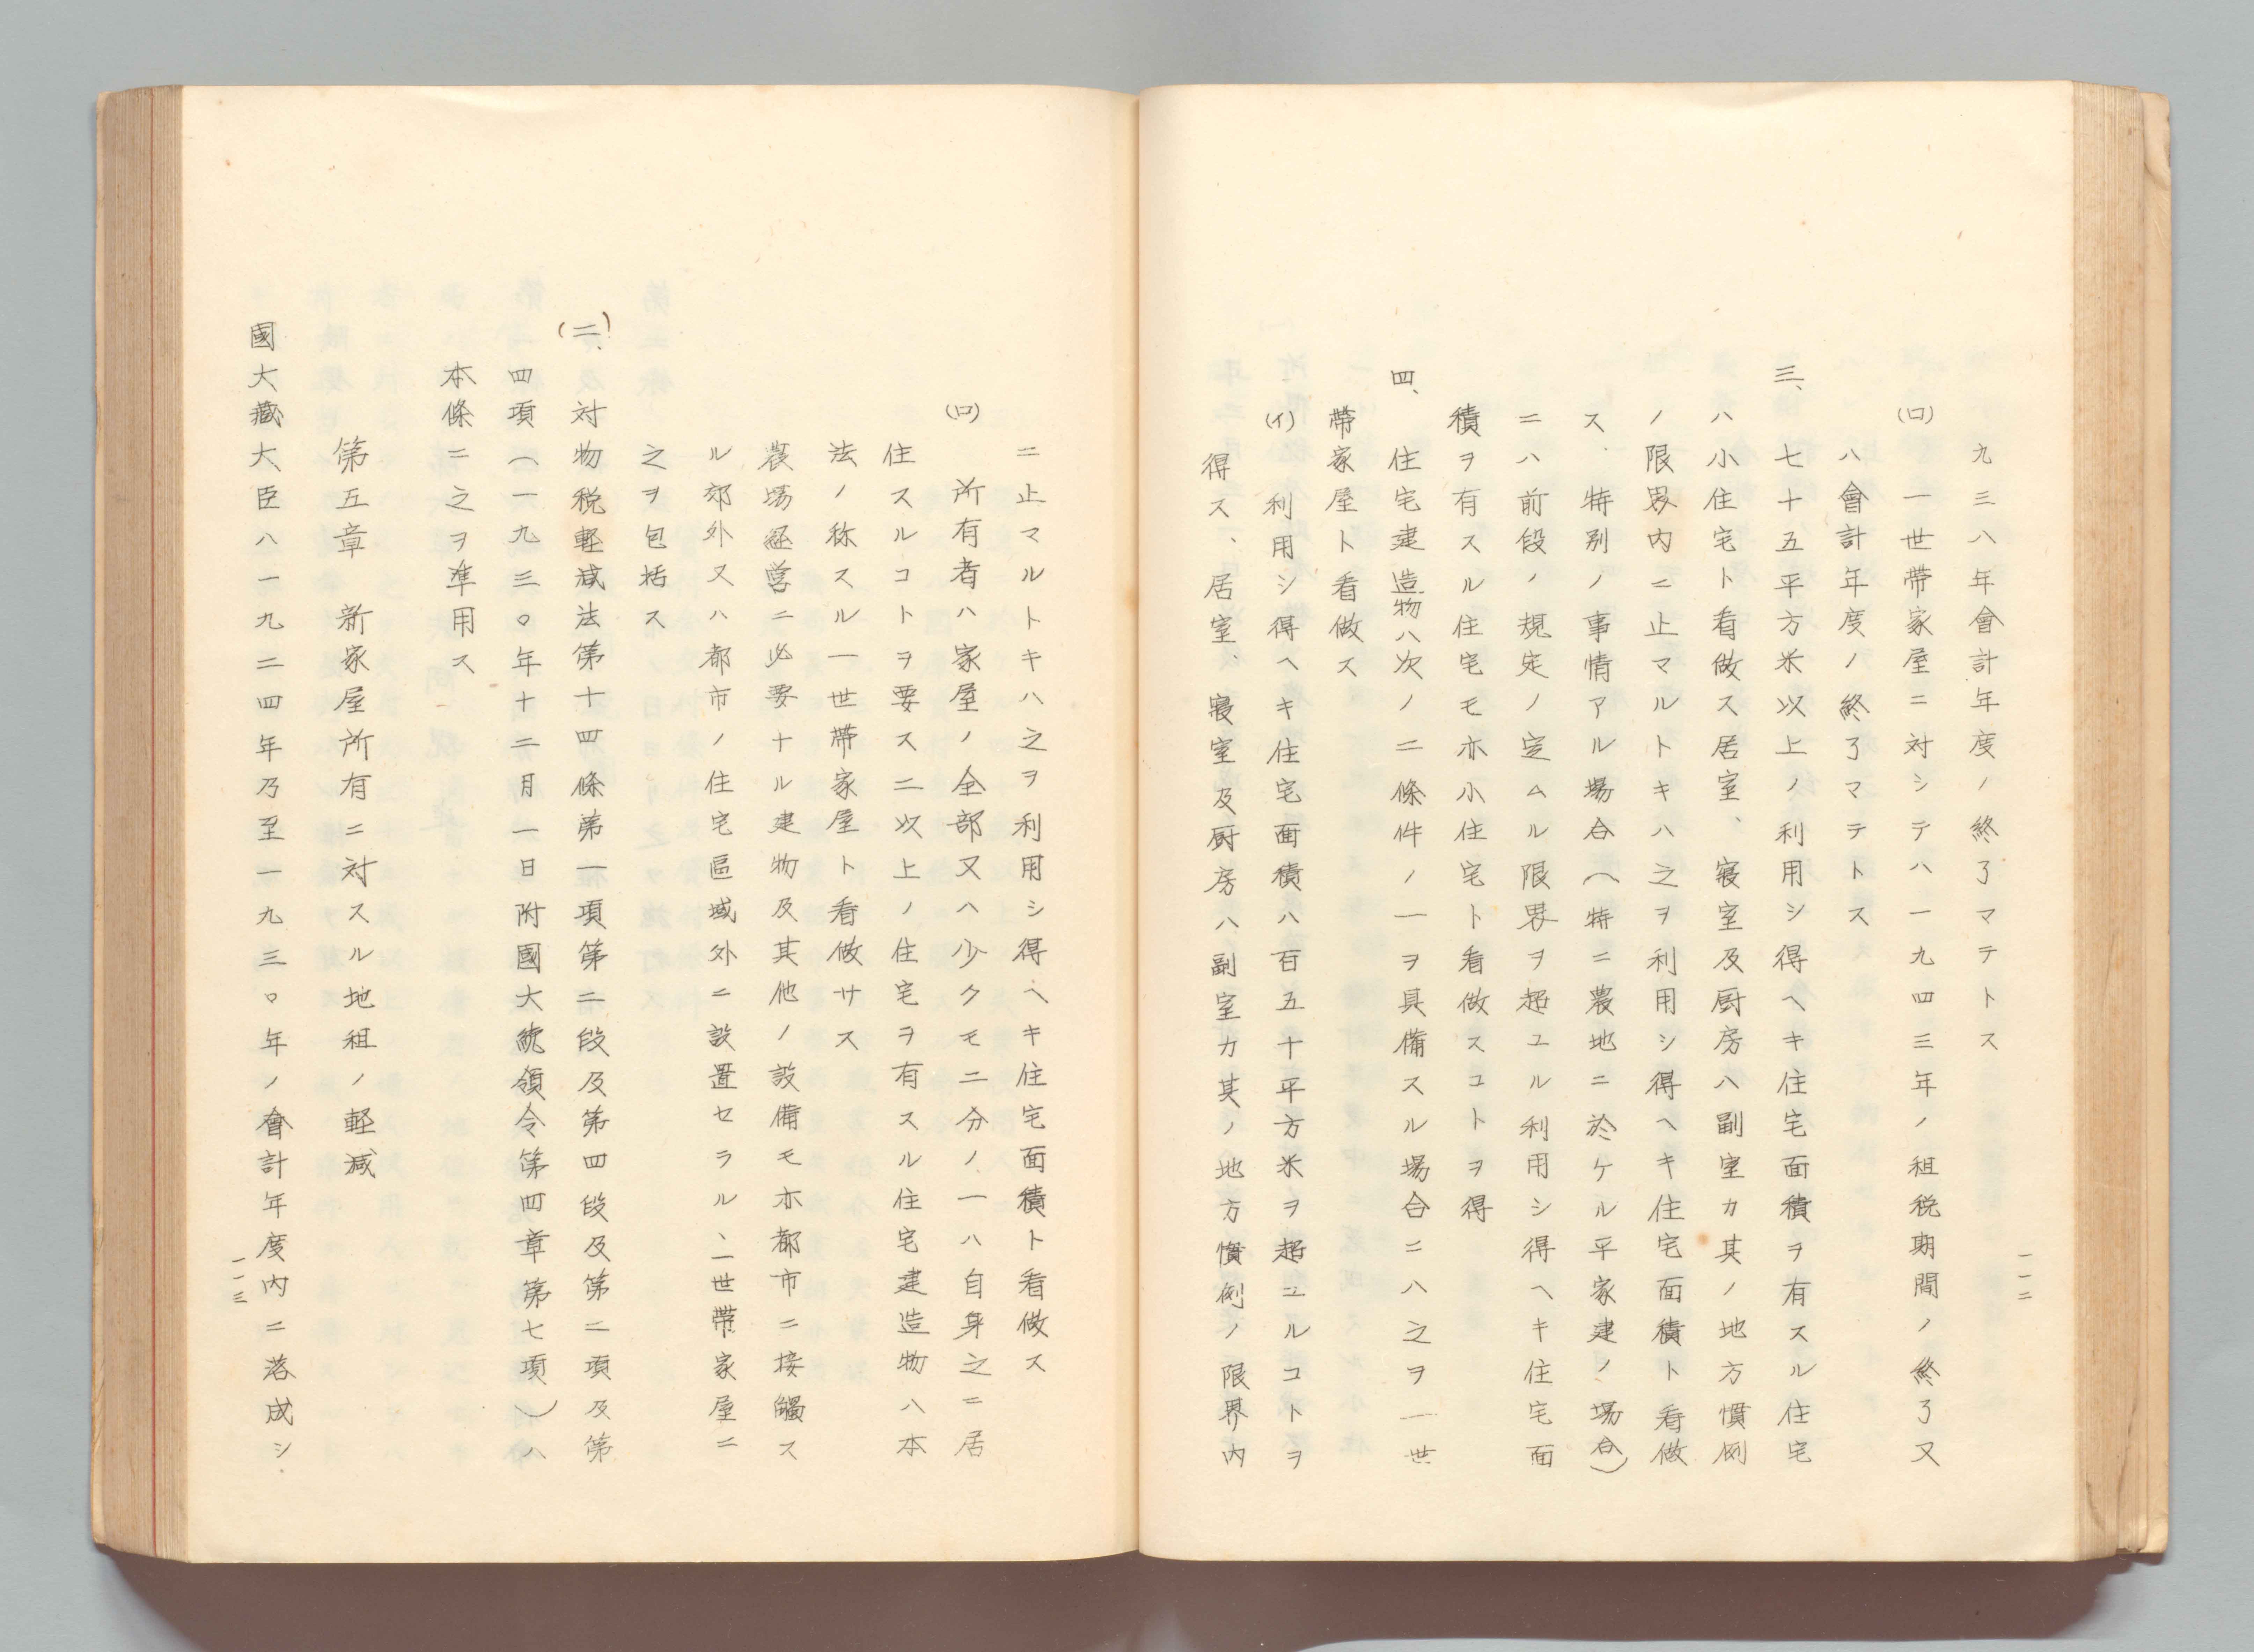 九三八年會計年度ノ終了マテトス
(ロ) 一世帶家屋ニ対シテハ一九四三年ノ租税期間ノ終了又
ハ會計年度ノ終了マテトス
三、七十五平方米以上ノ利用シ得ヘキ住宅面積ヲ有スル住宅
ハ小住宅ト看做ス居室、寝室及厨房ハ副室カ其ノ地方慣例
ノ限界内ニ止マルトキハ之ヲ利用シ得ヘキ住宅面積ト看做
ス、特別ノ事情アル場合(特ニ農地ニ於ケル平家建ノ場合)
ニハ前段ノ規定ノ定ムル限界ヲ超ユル利用シ得ヘキ住宅面
積ヲ有スル住宅モ亦小住宅ト看做スコトヲ得
四、住宅建造物ハ次ノ二條件ノ一ヲ具備スル場合ニハ之ヲ一世
帶家屋ト看做ス
(イ) 利用シ得ヘキ住宅面積ハ百五十平方米ヲ超ユルコトヲ
得ス、居室、寝室及厨房ハ副室カ其ノ地方慣例ノ限界内
一一二
ニ止マルトキハ之ヲ利用シ得ヘキ住宅面積ト看做ス
(ロ) 所有者ハ家屋ノ全部又ハ少クモ二分ノ一ハ自身之ニ居
住スルコトヲ要ス二以上ノ住宅ヲ有スル住宅建造物ハ本
法ノ称スル一世帶家屋ト看做サス
農場経営ニ必要ナル建物及其他ノ設備モ亦都市ニ接觸ス
ル郊外又ハ都市ノ住宅區域外ニ設置セラル、一世帶家屋ニ
之ヲ包括ス
(二、対物税軽減法第十四條第一項第二段及第四段及第二項及第
四項(一九三〇年十二月一日附國大統領令第四章第七項)ハ
本條ニ之ヲ準用ス
第五章 新家屋所有ニ対スル地租ノ軽減
國大藏大臣ハ一九二四年乃至一九三〇年ノ會計年度内ニ落成シ
一一三